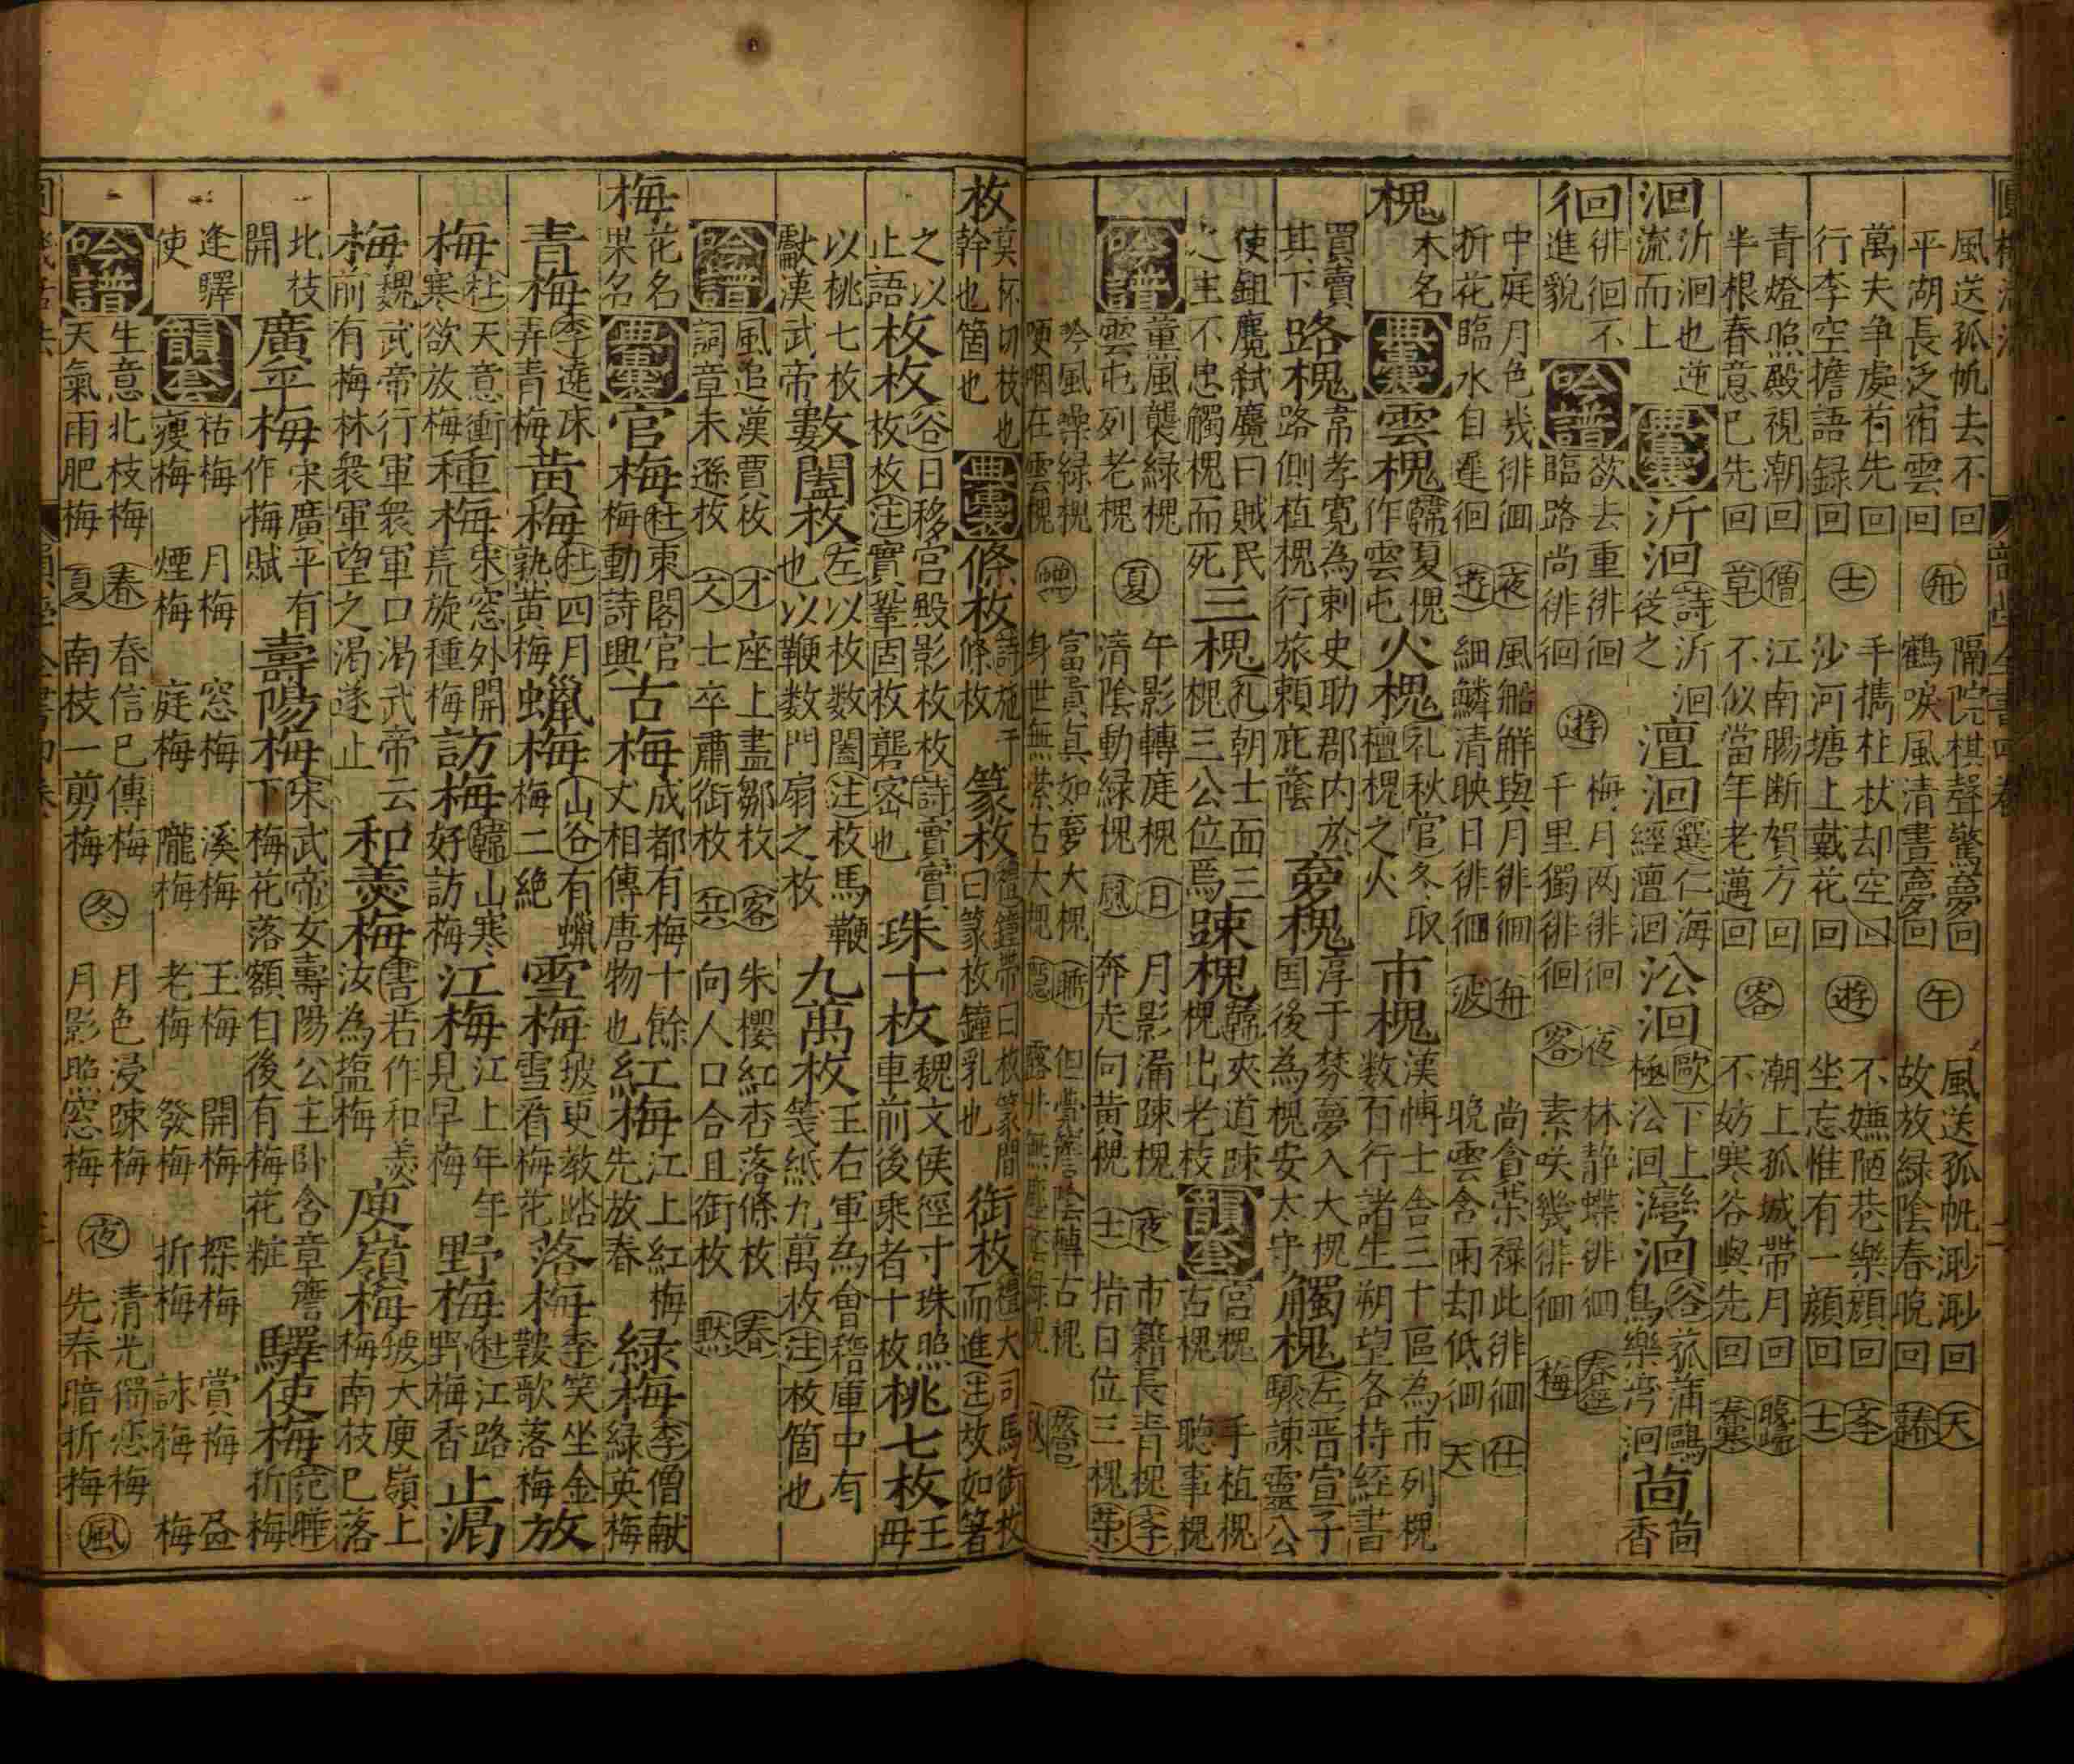 風送孤帆去不回 隔院棋聲驚夢回 午 風送孤帆渺渺回 天
平湖長泛宿雲回 舟 鶴唳風清晝夢回 故放綠陰春晚回
萬夫争處有先回 士 手擕柱杖却空回 遊 不嫌陋巷樂顔回
行李空擔語録回 沙河塘上戴花回 坐忘惟有一顔回 士
青燈照殿視潮回 僧 江南腸断賀方回 客 潮上孤城帶月回
半根春意已先回 草 不似當年老邁回 不妨寒谷與先回
洄 泝洄也逆
流而上 典囊 泝洄 詩泝洄從之 澶洄 選仁海經澶洄 㳂洄 歐下上極㳂洄 灣洄 谷菰蒲鷗鳥樂湾洄 茴 茴香
徊 徘徊不
進貌 吟譜 欲去重徘徊 遊 梅月两徘徊 夜 林静蝶徘徊
臨路尚徘徊 千里獨徘徊 客 素咲幾徘徊 梅
中庭月色幾徘徊 夜 風船觧與月徘徊 舟 尚貪荣禄此徘徊 仕
折花臨水自遲徊 遊 細鱗清映日徘徊 波 晩雲含雨却低徊 天
槐 木名 典囊 雲槐 韓夏槐作雲屯 火槐 礼秋官冬取檀槐之火 市槐 漢博士舎三十區為市列槐数百行諸生朔望各持經書
買賣其下 路槐 韋孝寛為刺史路側植槐行旅頼庇蔭 夢槐 淳于棼夢入大槐国後為槐安太守 觸槐 左晋宣子驟諫靈公
使鉏麑弑麑曰賊民之主不忠觸槐而死 三槐 礼朝士面三槐三公位焉 踈槐 韓夾道踈槐出老枝 韻套 宮槐 手植槐
古槐 聴事槐
吟譜 薫風襲緑槐 夏 午影轉庭槐 日 月影漏踈槐 夜 市籍長青槐
雲屯列老槐 清陰動緑槐 風 奔走向黄槐 士 指日位三槐
吟風噪緑槐 蟬 富貴真如夢大槐
哽咽在雲槐 身世無縈古大槐 但覺簷陰轉古槐
枚 莫杯切枝也
幹也箇也 典囊 條枚 詩施于條枚 篆枚 曰枚篆間曰篆枚鐘乳也 銜枚 大司馬銜枚而進注枚如箸
之以止語 枚枚 谷日移宮殿影枚枚注實鞏固枚礱宻也 珠十枚 魏文侯徑寸珠照車前後乗者十枚 桃七枚 王母
以桃七枚獻漢武帝 數闔枚 左以枚数闔注枚馬鞭也以鞭数門扇之枚 九萬枚 王右軍為會稽庫中有箋紙九萬枚注枚箇也
吟譜 風追漢賈枚 才 座上盡鄒枚 客 朱櫻紅杏落條枚 春
詞章未遜枚 文 士卒肅銜枚 兵 向人口合且銜枚 黙
梅 花名
果名 典囊 官梅 杜東閣官梅動詩興 古梅 成都有梅十餘丈相傳唐物也 紅梅 江上紅梅先放春 緑梅 李僧献緑英梅
青梅 李遶床弄青梅 黄梅 杜四月熟黄梅 蠟梅 山谷有蠟梅二絶 雪梅 坡更教踏雪看梅花 落梅 李笑坐金鞍歌落梅 放
梅 杜天意衝寒欲放梅 種梅 宋窓外開荒旋種梅 訪梅 韓山寒好訪梅 江梅 江上年年見早梅 野梅 杜江路野梅香 止渇
梅 魏武帝行軍衆軍口渇武帝云前有梅林衆軍望之渇遂止 和羮梅 書若作和羮汝為塩梅 庾嶺梅 坡大庾嶺上梅南枝已落
北枝開 廣平梅 宋廣平有作梅賦 壽陽梅 宋武帝女壽陽公主卧含章簷下梅花落額自後有梅花粧 驛使梅 范曄折梅
逢驛使 韻套 枯梅 月梅 窓梅 溪梅 王梅 開梅 探梅 賞梅 盆
瘦梅 煙梅 庭梅 隴梅 老梅 發梅 折梅 詠梅 梅
吟譜 生意北枝梅 春 春信已傳梅 冬 月色浸踈梅 夜 清光獨恋梅 風
天氣雨肥梅 夏 南枝一剪梅 月影照窓梅 先春暗折梅